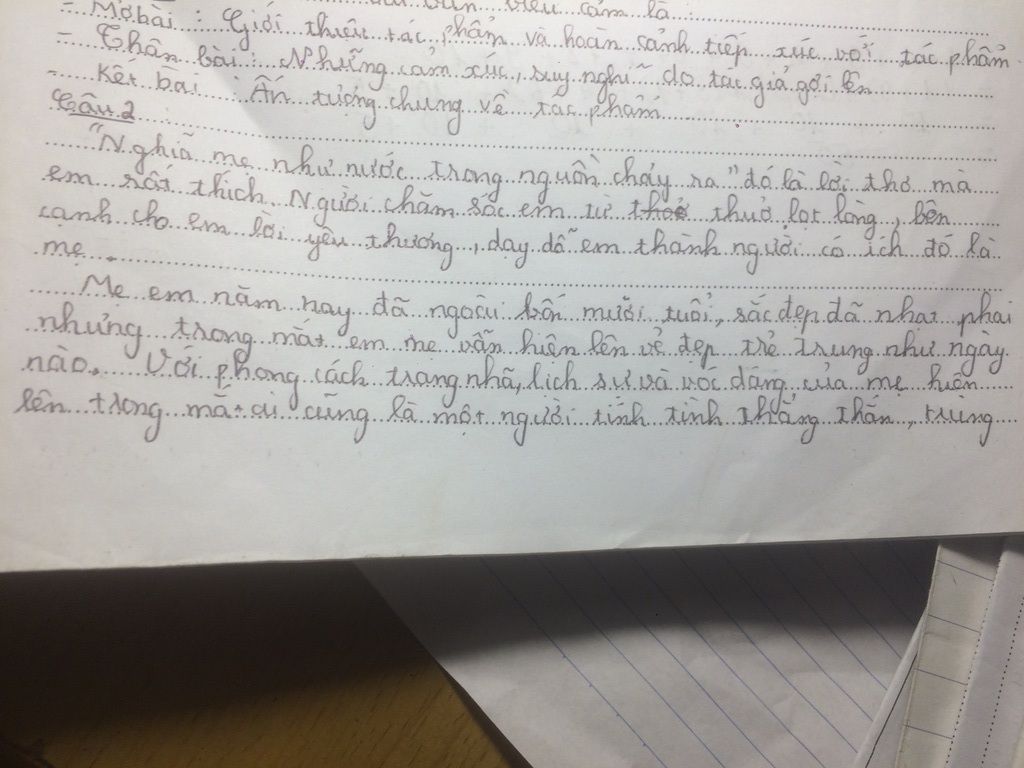 văn biểu cảm là :
- Mở bài : Giới thiệu tác phẩm và hoàn cảnh tiếp xúc với tác phẩm
- Thân bài : Những cảm xúc, suy nghĩ do tác giả gợi lên
- Kết bài : Ấn tượng chung về tác phẩm
Câu 2 :
"Nghĩa mẹ như nước trong nguồn chảy ra" đó là lời thơ mà
em rất thích. Người chăm sóc em từ thuở lọt lòng, bên
cạnh cho em lời yêu thương, dạy dỗ em thành người có ích đó là
mẹ.
Mẹ em năm nay đã ngoài bốn mười tuổi, sắc đẹp đã nhạt phai
nhưng trong mắt em mẹ vẫn hiện lên vẻ đẹp trẻ trung như ngày
nào. Với phong cách trang nhã, lịch sự và vóc dáng của mẹ hiện
lên trong mắt ai cũng là một người tính tình thẳng thắn, trùng